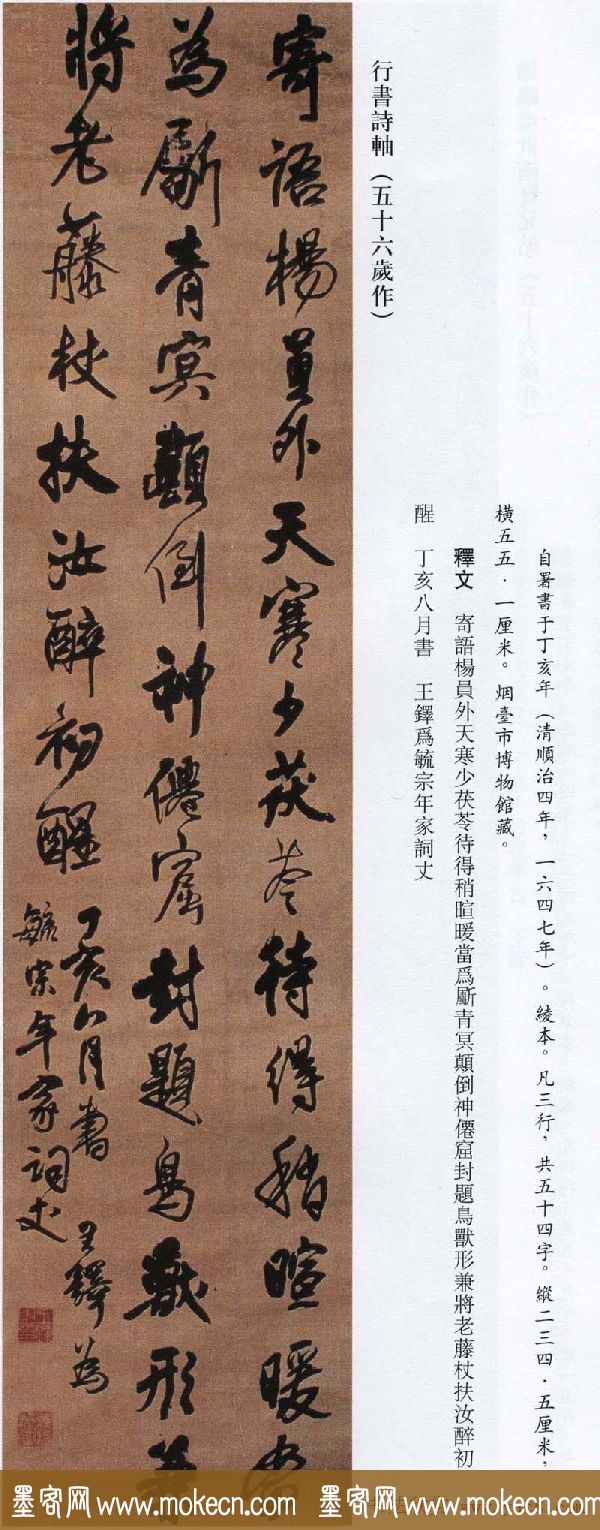 行書詩軸（五十六歲作）
自署書于丁亥年（清順治四年，一六四七年）。綾本。凡三行，共五十四字。縱二三四·五厘米，
橫五五·一厘米。烟臺市博物館藏。
釋文　寄語楊員外天寒少茯苓待得稍暄暖當爲斸青冥顛倒神僊窟封題鳥獸形兼將老藤杖扶汝醉初
醒　丁亥八月書　王鐸爲毓宗年家詞丈
寄語楊員外天寒少茯苓待得稍暄暖當
為斸青冥顛倒神僊窟封題鳥獸形兼
將老藤杖扶汝醉初醒
丁亥八月書　王鐸為
毓宗年家詞丈
墨客网 www.mokecn.com 墨客网 www.mokecn.com